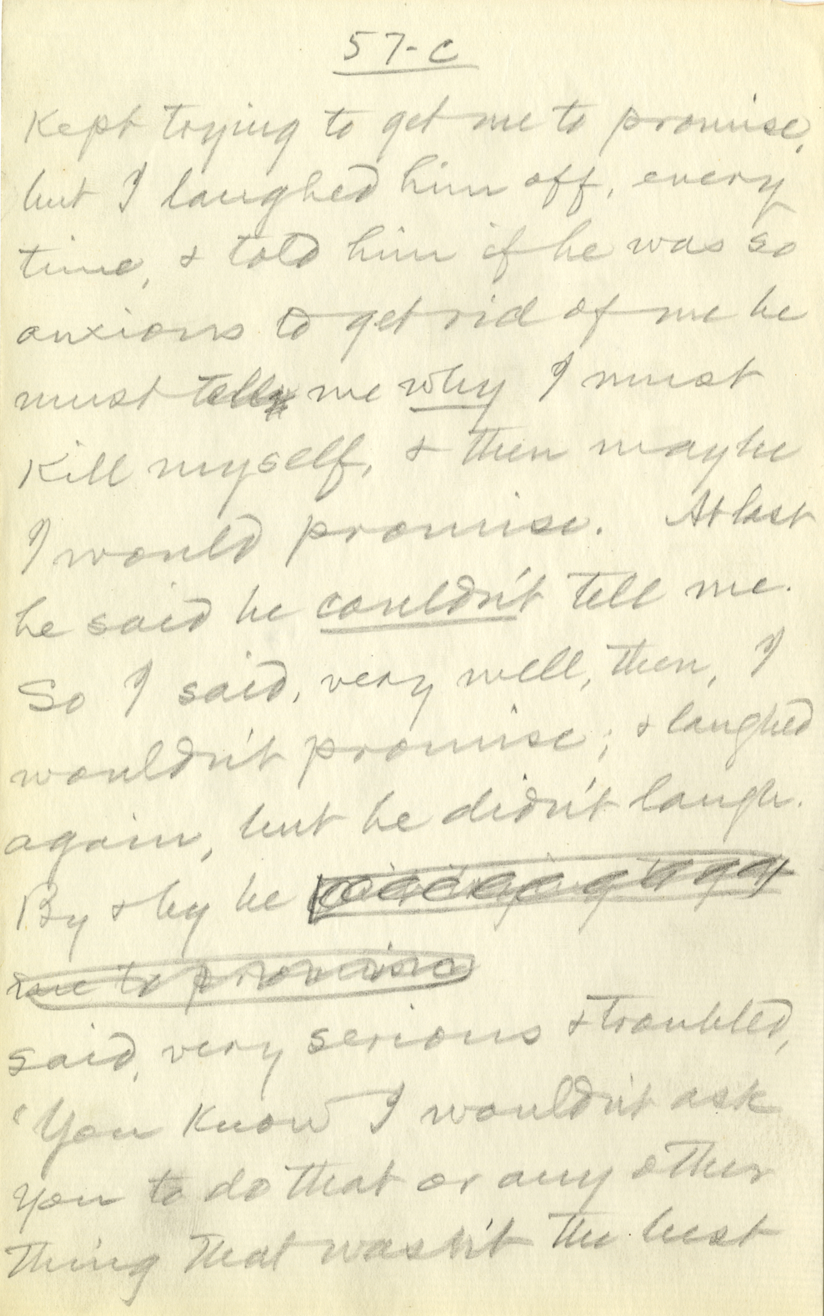 57-c
Kept trying to get me to promise,
but I laughed him off, every
time, & told him if he was so
anxious to get rid of me he
must tell me why I must
Kill myself, & then maybe
I would promise. At last
he said he couldn't tell me.
So I said, very well, then, I
wouldn't promise; & laughed
again, but he didn't laugh.
By & by he
me to promise
said, very serious & troubled,
"You Know I wouldn't ask
you to do that or any other
thing that wasn't the best